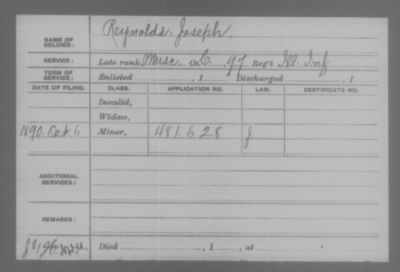 Reynolds, Joseph.
NAME OF SOLDIER:
SERVICE: Late rank Musc. Co. C, 97 Reg't Ill. Inf
TERM OF SERVICE: Enlisted , 1 Discharged , 1
DATE OF FILING. CLASS. APPLICATION NO. LAW. CERTIFICATE NO.
Invalid,
Widow,
1890, Oct 6 Minor, 481.628 J.
ADDITIONAL SERVICES:
REMARKS:
Died , 1 , at